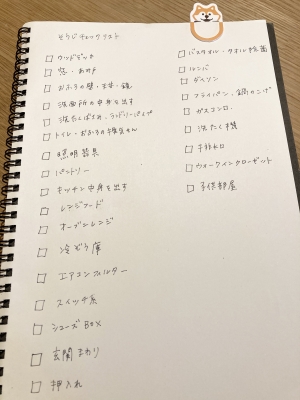 そうじチェックリスト
□ ウッドデッキ
□ 窓・あみ戸
□ おふろの壁・天井・鏡
□ 洗面所の中身を出す
□ 洗たくぱん
□ トイレ・おふろの換気せん
□ 照明器具
□ パントリー
□ キッチン中身を出す
□ レンジフード
□ オーブンレンジ
□ 冷ぞう庫
□ エアコンフィルター
□ スイッチ系
□ シューズBOX
□ 玄関まわり
□ 押入れ
□ バスタオル・タオル除菌
□ ルンバ
□ ダイソン
□ フライパン、鍋のこげ
□ ガスコンロ
□ 洗たく機
□ 排水口
□ ウォークインクローゼット
□ 子供部屋